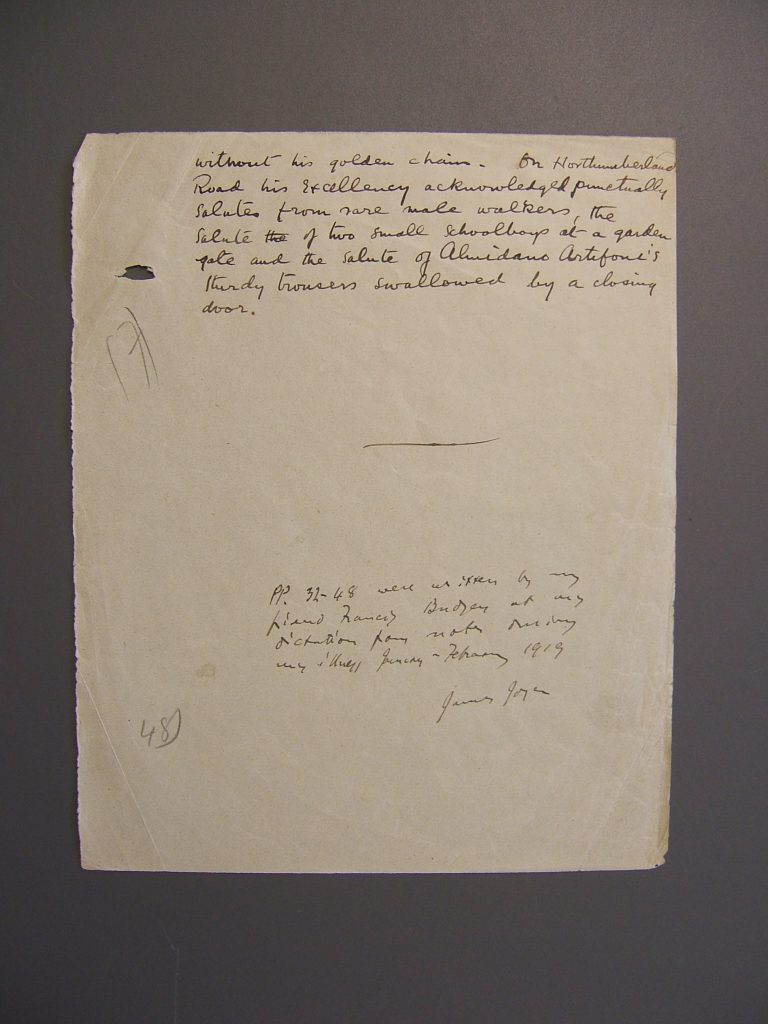 without his golden chain. On Northumberland
Road his Excellency acknowledged punctually
salutes from rare male walkers, the
salute the of two small schoolboys at a garden
gate and the salute of Almidano Artifoni's
sturdy trousers swallowed by a closing
door.
PP. 32-48 were written by my
friend Francis Budgen at my
dictation from notes during
my illness January - February 1919
James Joyce
48)